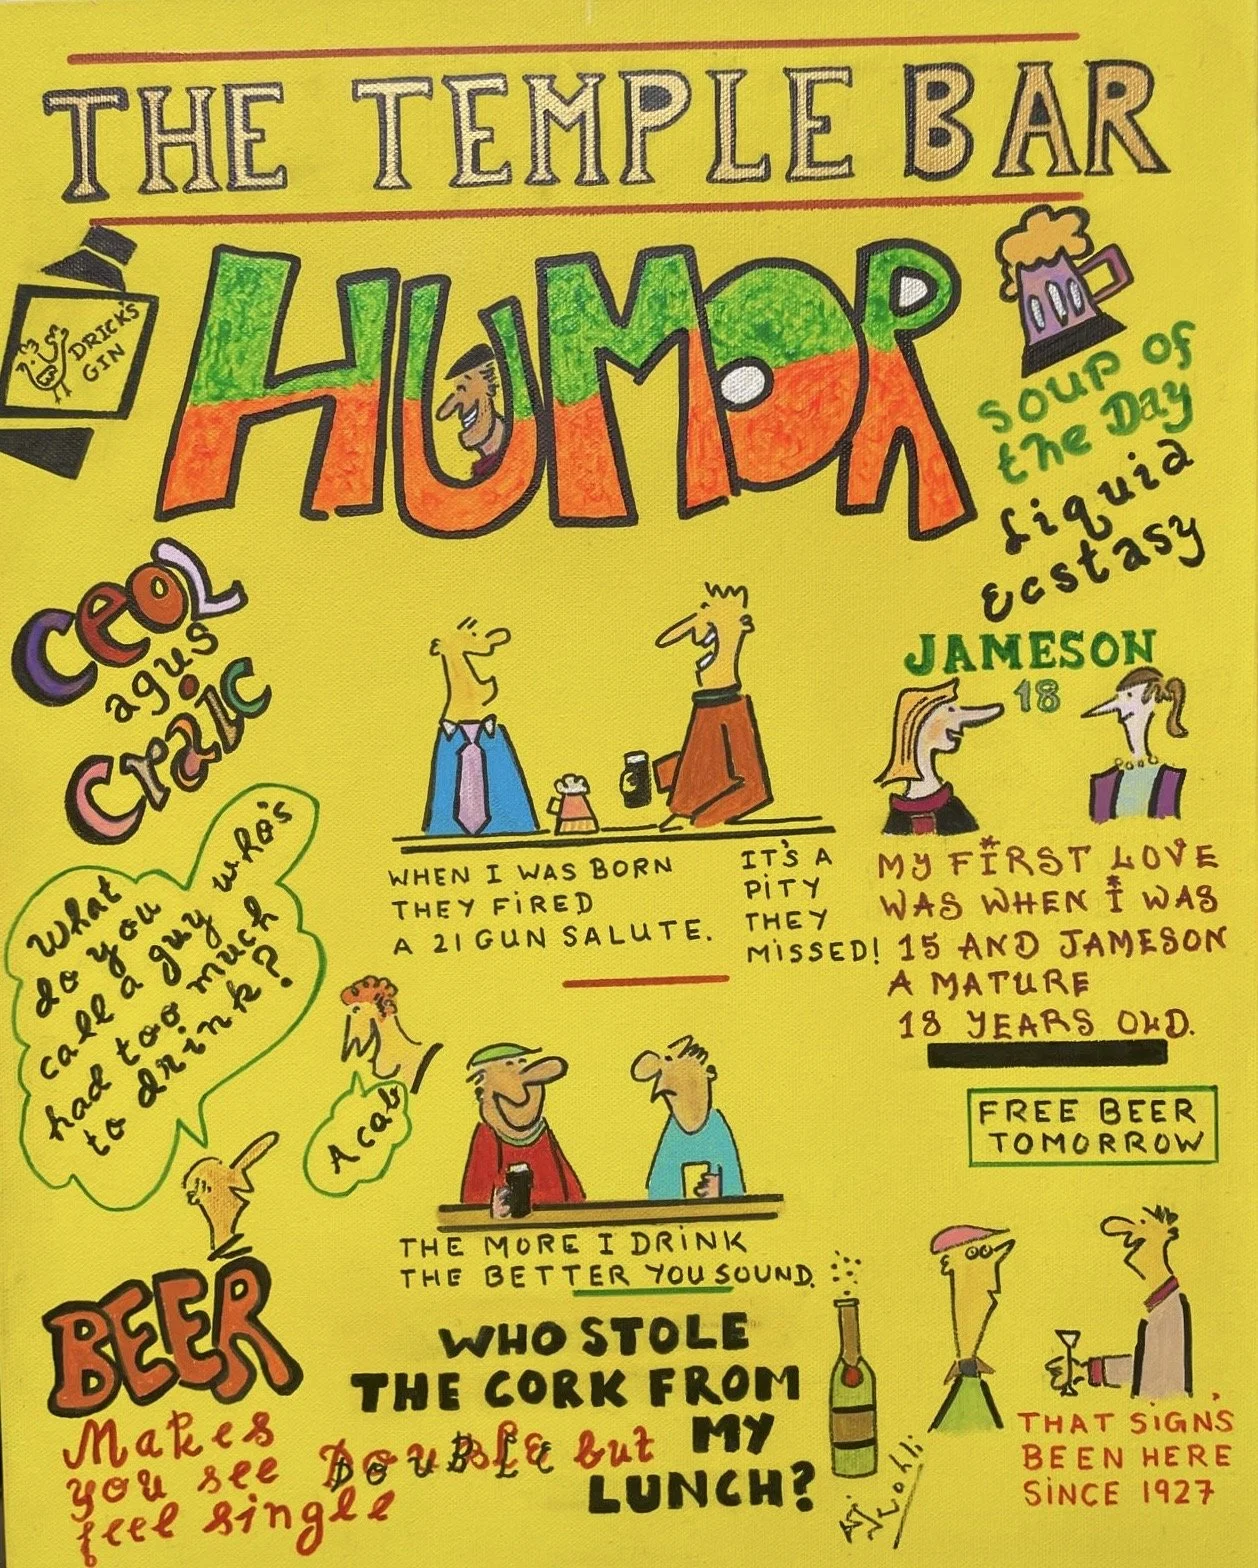 THE TEMPLE BAR
HUMOR
DRICK'S
GIN
SOUP OF
the Day
Liquid
Ecstasy
CEOL
agus
Craic
JAMESON
18
WHEN I WAS BORN
THEY FIRED
A 21 GUN SALUTE.
IT'S A
PITY
THEY
MISSED!
MY FIRST LOVE
WAS WHEN I WAS
15 AND JAMESON
A MATURE
18 YEARS OLD.
What
do you
call a guy who's
had too much
to drink?
A cab
THE MORE I DRINK
THE BETTER YOU SOUND.
FREE BEER
TOMORROW
THAT SIGN'S
BEEN HERE
SINCE 1927
BEER
Makes
you see DOUBLE but
feel single
WHO STOLE
THE CORK FROM
MY
LUNCH?